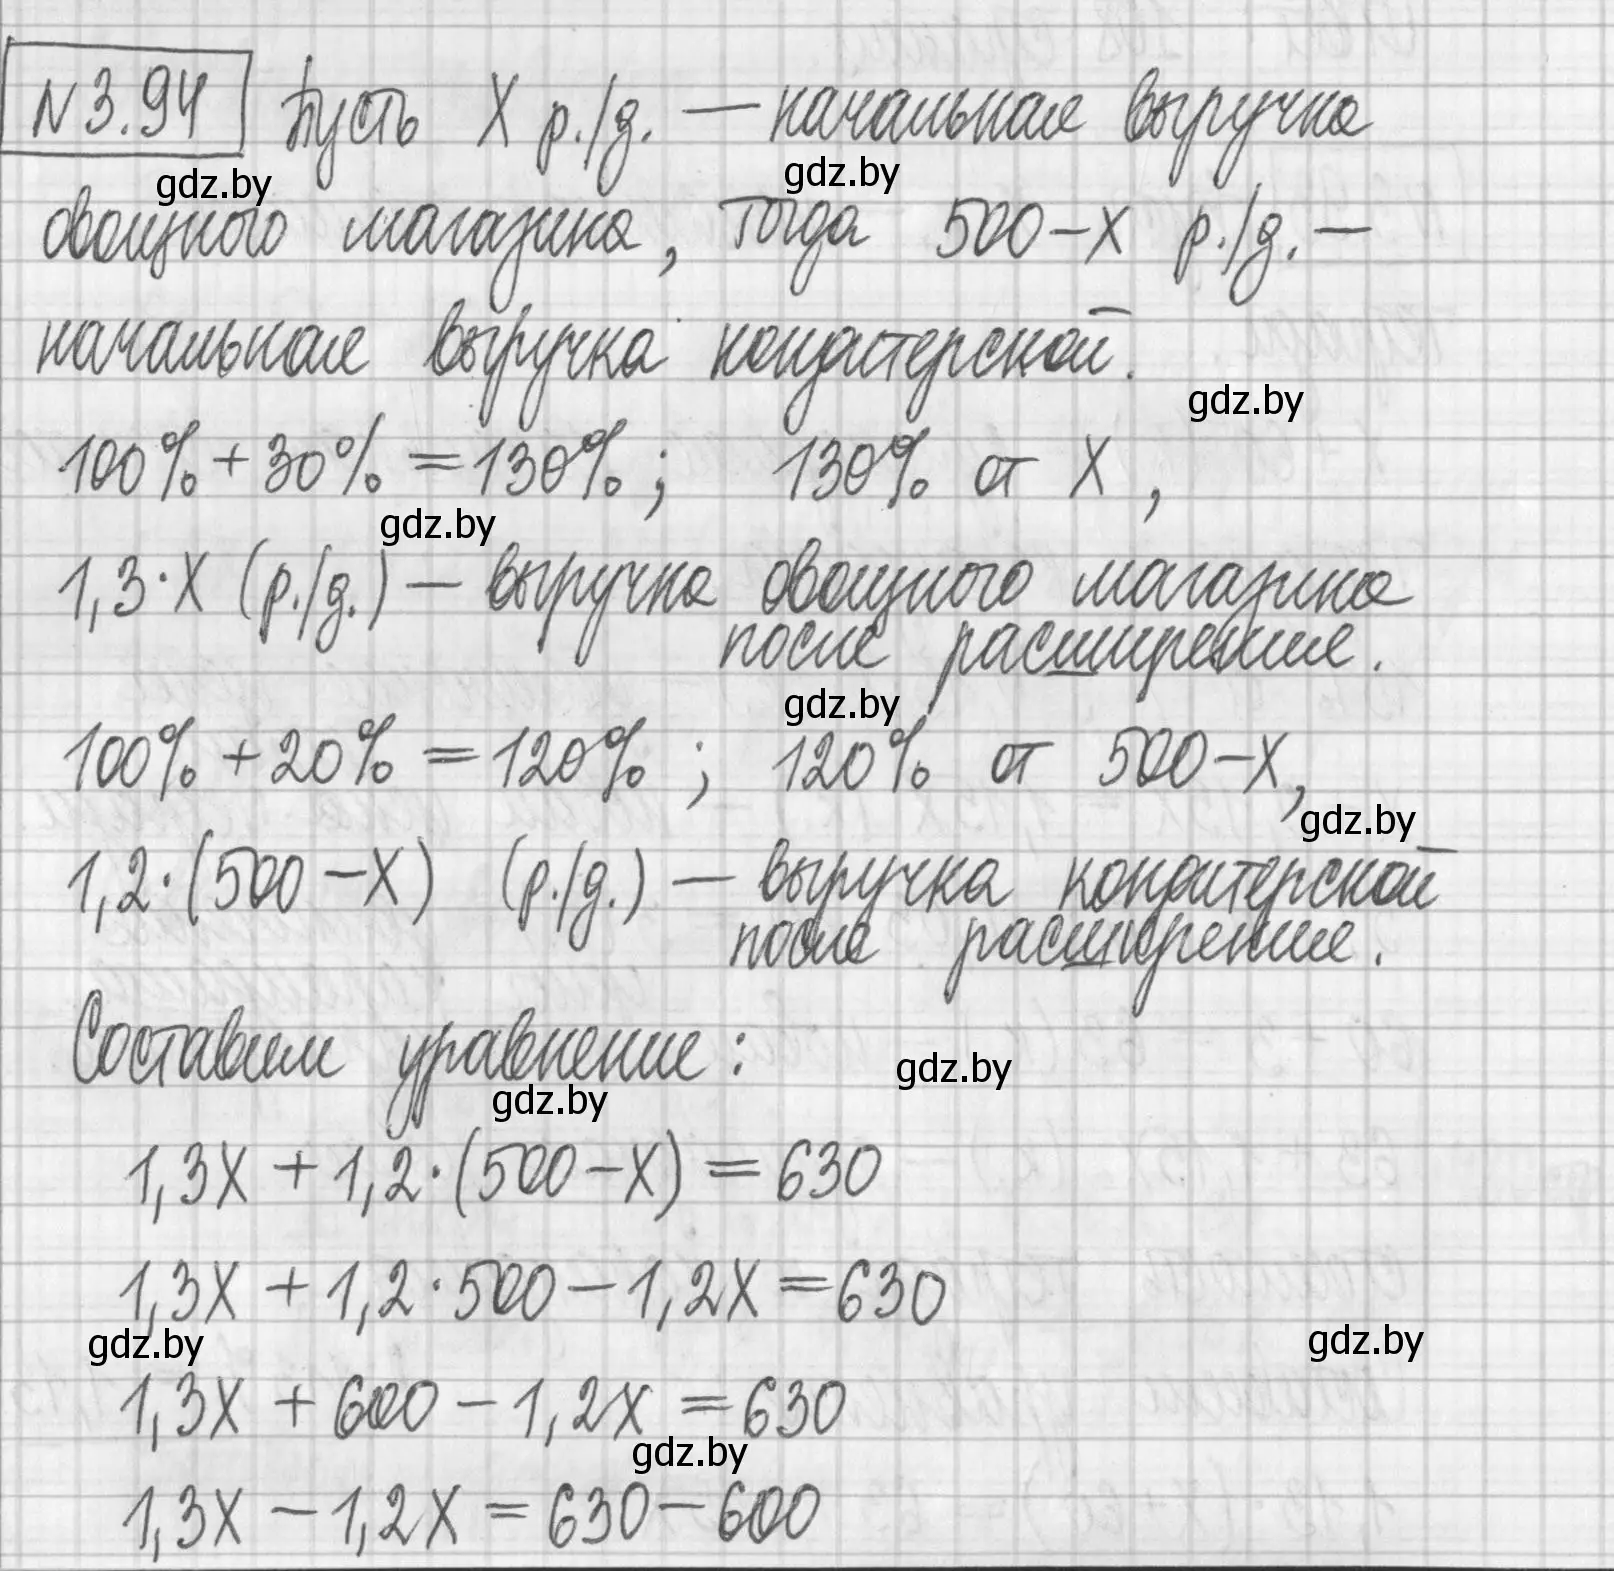 N 3.94 Пусть X р./д. — начальная выручка
gdz.by gdz.by
овощного магазина, тогда 500-X р./д. —
начальная выручка кондитерской.
gdz.by
100% + 30% = 130%; 130% от X,
gdz.by
1,3·X (р./д.) — выручка овощного магазина
после расширения.
gdz.by
100% + 20% = 120%; 120% от 500-X,
gdz.by
1,2·(500-X) (р./д.) — выручка кондитерской
после расширения.
Составим уравнение:
gdz.by
gdz.by
1,3X + 1,2·(500-X) = 630
1,3X + 1,2·500 - 1,2X = 630
gdz.by gdz.by
1,3X + 600 - 1,2X = 630
gdz.by
1,3X - 1,2X = 630 - 600